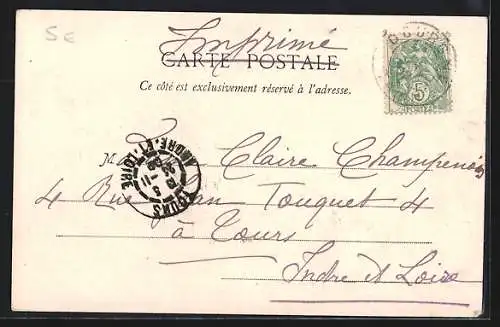 5e
Imprimé
CARTE POSTALE
Ce côté est exclusivement réservé à l'adresse.
5
M Claire Champenois
4 Rue Jean Fouquet 4
à Tours
Indre et Loire
TOURS
INDRE-ET-LOIRE